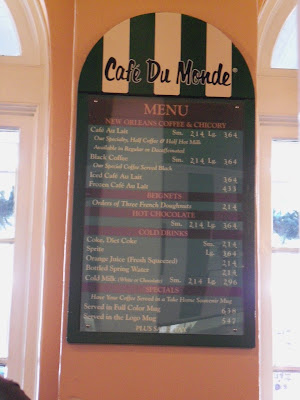 Café Du Monde®
MENU
NEW ORLEANS COFFEE & CHICORY
Café Au Lait Sm. 2.14 Lg. 3.64
Our Specialty, Half Coffee & Half Hot Milk
Available in Regular or Decaffeinated
Black Coffee Sm. 2.14 Lg. 3.64
Our Special Coffee Served Black
Iced Café Au Lait 3.64
Frozen Café Au Lait
BEIGNETS
Orders of Three French Doughnuts 2.14
HOT CHOCOLATE
Sm. 2.14 Lg. 3.64
COLD DRINKS
Coke, Diet Coke Sm. 2.14
Sprite Lg. 3.64
Orange Juice (Fresh Squeezed) 2.14
Bottled Spring Water 2.14
Cold Milk (White or Chocolate) Sm. 2.14 Lg. 2.96
SPECIALS
Have Your Coffee Served in a Take Home Souvenir Mug
Served in Full Color Mug
Served in the Logo Mug
PLUS